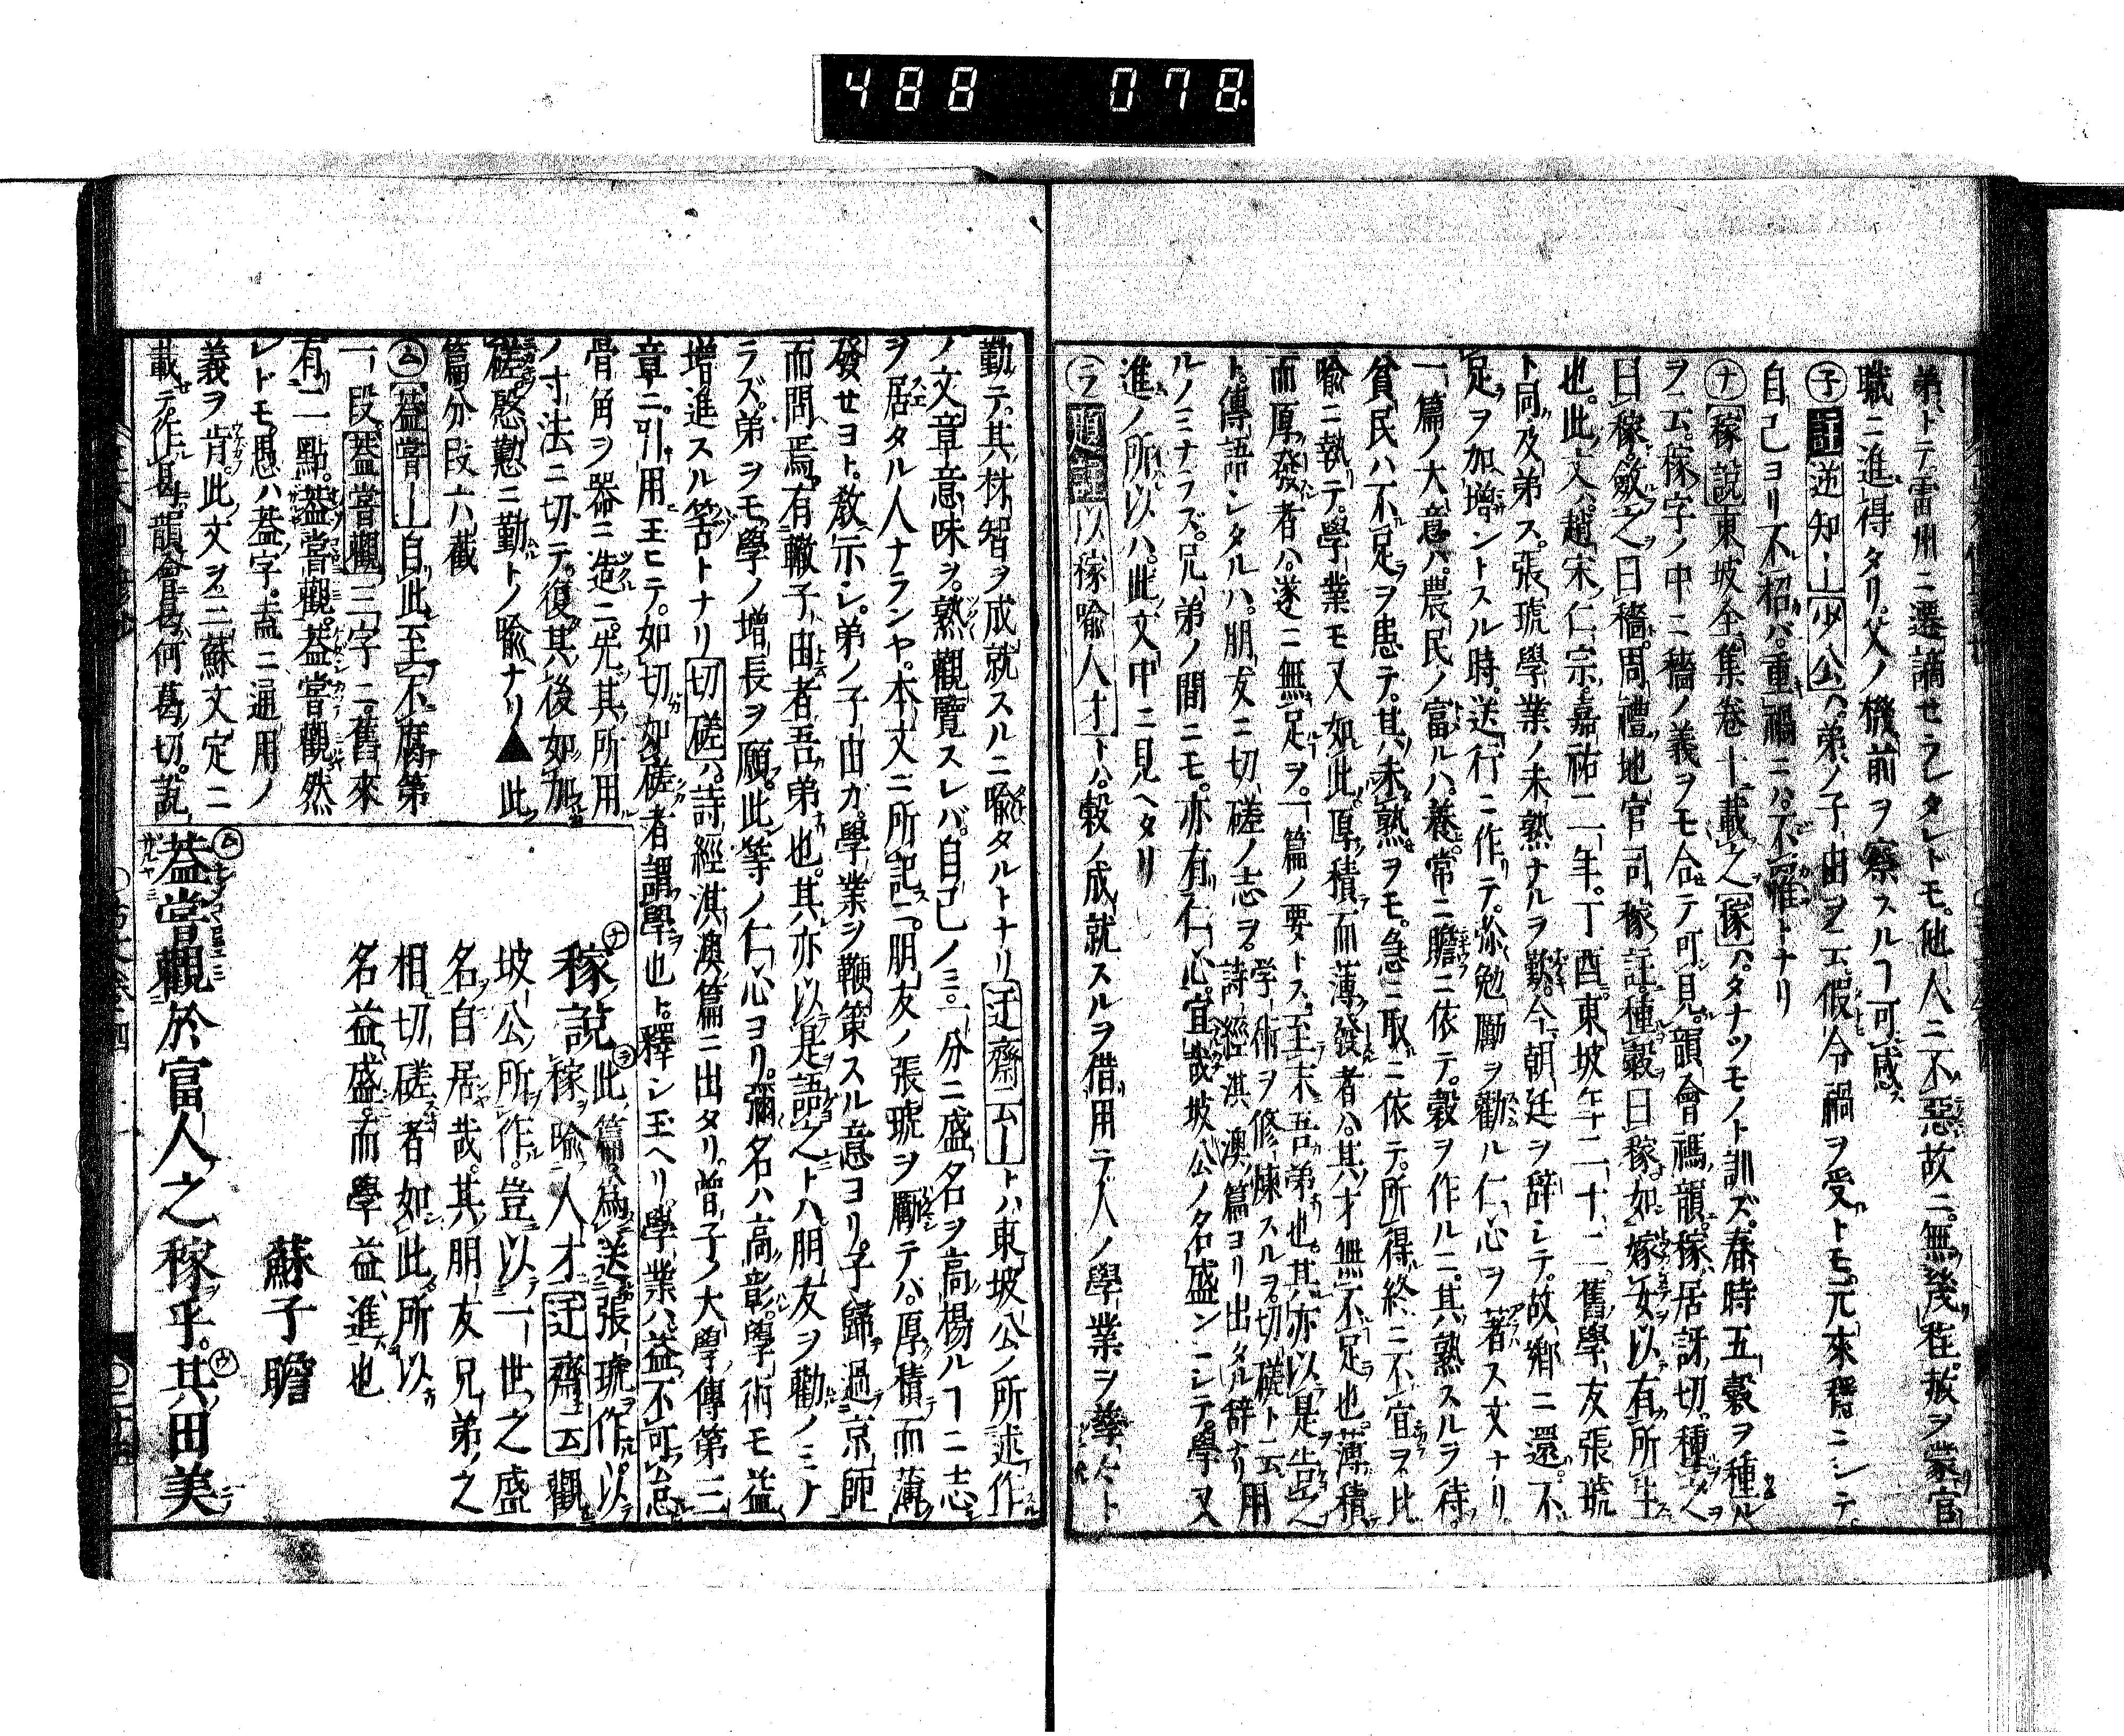 488 078
弟トテ雷州ニ遷謫セラレタレドモ。他人ニ不惡故ニ。無幾程。抜ヲ蒙官
職ニ進得タリ。父ノ機前ヲ察スルヿ可感
子 註逆知ー 少公ハ弟ノ子由ヲ云。假令禍ヲ受トモ。元來穩ニシテ。
自己ヨリ不招バ。重禍ニハ。不罹トナリ
ナ 稼説 東坡全集卷十載之 稼ハタナツモノト訓ズ。春時五穀ヲ種ル
ヲ云。稼字ノ中ニ穡ノ義ヲモ合テ可見。韻會禡韻。稼居訝切。種之
曰稼。斂之曰穡。周禮地官司稼註。種穀曰稼。如嫁女以有所生
也。此文ハ。趙宋仁宗嘉祐二年。丁酉東坡年二十二。舊學友張琥
ト同及弟ス。張琥學業ノ未熟ナルヲ歎。今朝廷ヲ辞シテ。故郷ニ還。不
足ヲ加増ントスル時。送行ニ作テ。弥勉勵ヲ勸ル仁心ヲ著ス文ナリ。
一篇ノ大意ハ。農民ノ富ルハ。養常ニ贍ニ依テ。穀ヲ作ルニ。其熟スルヲ待。
貧民ハ不足ヲ患テ。其未熟ヲモ。急ニ取ニ依テ。所得終ニ不宜ヲ比
喩ニ執テ。學業モ又如此。厚積而薄發者ハ。其才無不足也。薄積
而厚發者ハ。遂ニ無足ヲ。一篇ノ要トス。至末吾弟也。其亦以是告之
ト。傳語シタルハ。朋友ニ切磋ノ志ヲ。学術ヲ修煉スルヲ。切磋ト云詩經淇澳篇ヨリ出タル辞ナリ用
ルノミナラズ。兄弟ノ間ニモ。亦有仁心。宜哉坡公ノ名盛ンニシテ。學又
進ノ所以ハ。此文中ニ見ヘタリ
ラ 題註 以稼喩人才トハ。穀ノ成就スルヲ借用テ人ノ學業ヲ
勤テ。其材智ヲ成就スルニ喩タルトナリ 迂齋云ートハ東坡公ノ所述作
ノ文章意味ヲ。熟觀覽スレバ。自己ノミ。一分ニ盛名ヲ高楊ルヿニ志
ヲ居タル人ナランヤ。本文ニ所記ニ。朋友ノ張琥ヲ勵テハ。厚積而薄
發セヨト。教示シ。弟ノ子由ガ。學業ヲ鞭策スル意ヨリ。子歸過京師
而問焉。有轍子由者吾弟也。其亦以是語之トハ。朋友ヲ勸ノミナ
ラズ。弟ヲモ。學ノ増長ヲ願。此等ノ仁心ヨリ。彌名ハ高彰。學術モ益
増進スル筈トナリ 切磋ハ。詩經淇澳篇ニ出タリ。曾子ノ大學傳第三
章ニ。引用玉ヒテ。如切如磋者謂學也ト。釋シ玉ヘリ。學業ハ益不可怠
骨角ヲ器ニ造ニ。先其所用
ノ寸法ニ切テ。復其後如加
磋。慇懃ニ勤トノ喩ナリ▲此
篇分段六截
ム 蓋嘗ー 自此至不腐第
一段。蓋嘗觀三字ニ。舊來
有二點。蓋嘗觀。蓋嘗觀然
レドモ。思ハ蓋字。盍ニ通用ノ
義ヲ肯。此文ヲ。三蘇文定ニ
載テ。作曷。韻會曷何葛切。説
ナ 稼説 ラ 此篇爲送張琥作。以
稼喩人才 迂齋云觀
坡公所作。豈以一世之盛
名自居哉。其朋友兄弟之
相切磋者如此。所以
名益盛。而學益進也
蘇子瞻
ム 蓋嘗觀於富人之稼乎。ウ 其田美